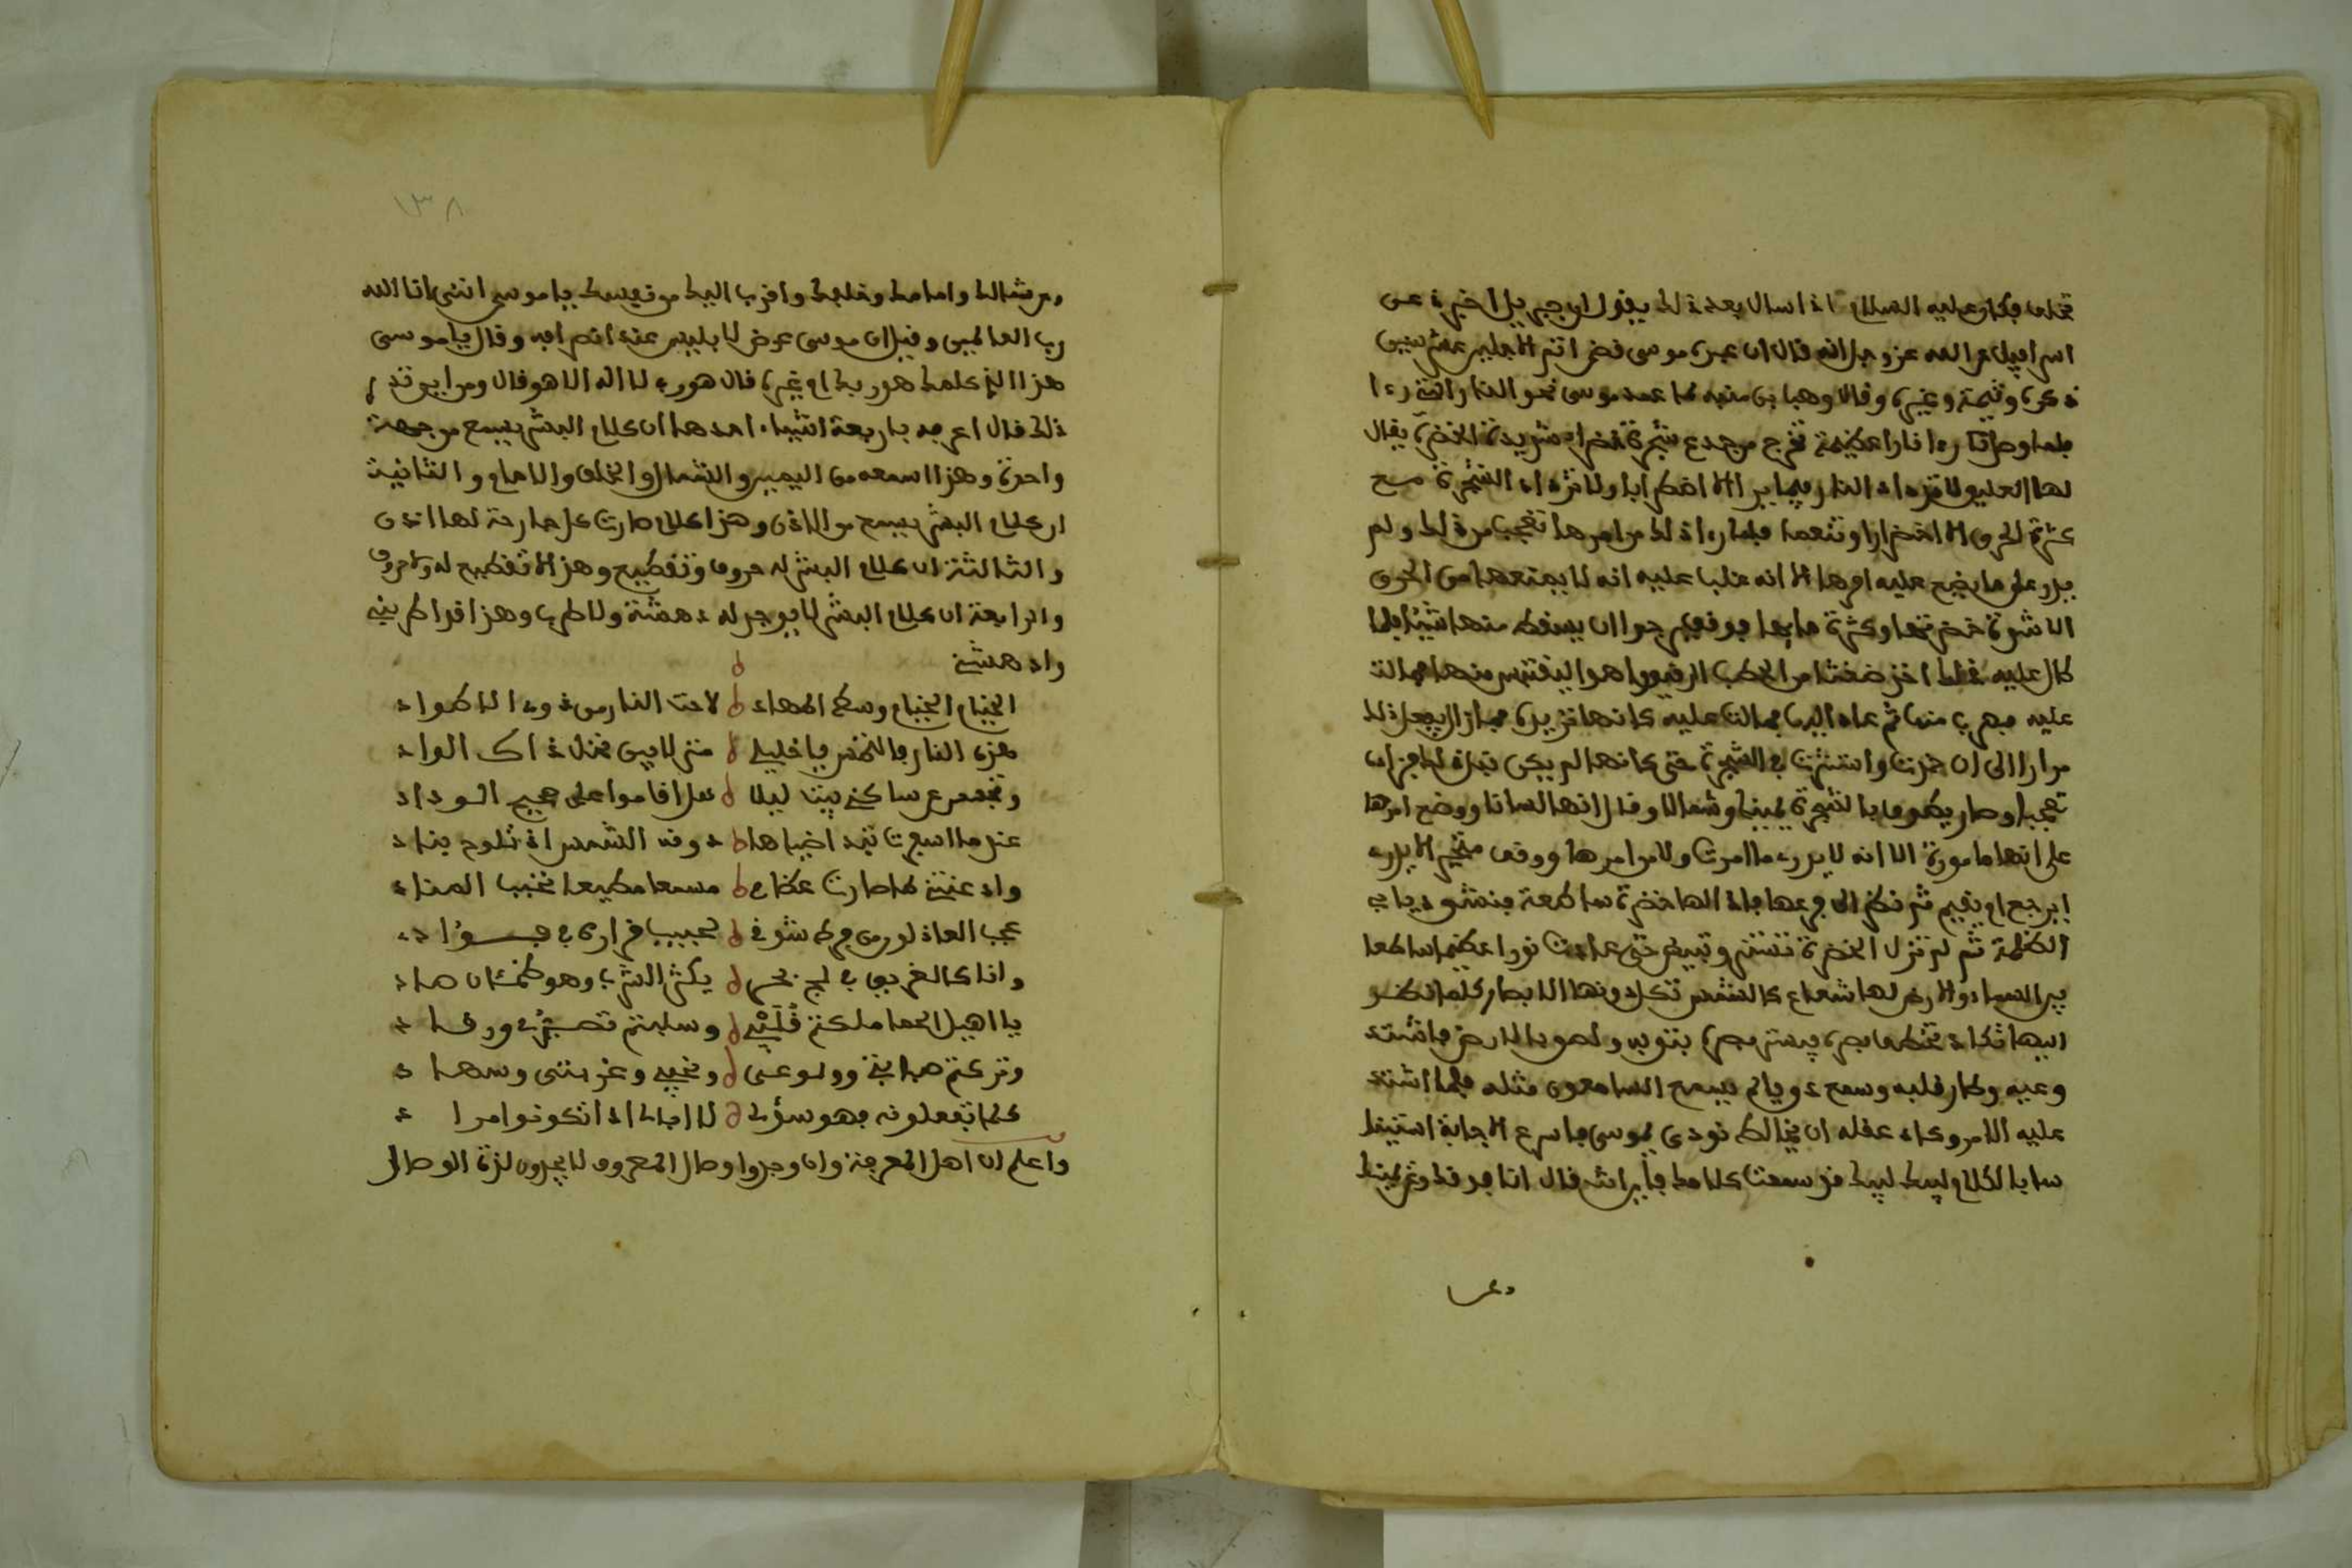 فكان عليه السلام اذا سال بعد ذلك يقول ان جبريل اخبره عن
اسرافيل عن الله عز وجل انه قال ان عبدي موسى قضى اتم الاجلين عشر سنين
ذكره وقتيبة وغيره وقال وهب ابن منبه لما عمد موسى نحو النار التي رءا
فلما وصل رءا نارا عظيمة تخرج من جذع شجرة خضراء شديدة الخضرة يقال
لها العليق لا تزداد النار فيما يرا الا اضطراما ولا تزداد الشجرة مع
كثرة الحرق الا اخضرارا وتنعما فلما رءا ذلك من امرها تعجب من ذلك ولم
يدر على ما يضع عليه امرها الا انه غلب عليه انه لا يمنعها من الحرق
الا شدة خضرتها وكثرة مايها فوقف يرجوا ان يسقط منها شيئا فلما
طال عليه ذلك اخذ ضغثا من الحطب الرقيق واهوا اليقتبس منها فمالت
عليه فهرب منها ثم عاد اليها فمالت عليه كانها تريده فما زال يفعل ذلك
مرارا الى ان خمدت واستترت في الشجرة حتى كانها لم يكن قبل ذلك فزاد
تعجبا وصار يطوف بالشجرة يمينا وشمالا وقال انها لسانا ووضع امرها
على انها مامورة الا انه لا يدرء ما امرت ولا من امرها ووقف متحير الا يدرء
ايرجع ام يقيم ثم نظر الى فرعها فاذا لها خضرة ساطعة فنتشو دياجي
الظلمة ثم لم تزل الخضرة تستنير وتبيض حتى عادت نورا عظيما ساطعا
بين السماء والارض لها شعاع كالشمس تكل دونها الابصار كلما نظر
اليها تكاد تخطف بصره فستر بصره بثوبه ولصق بالارض فاشتد
رعبه وطار قلبه وسمع دويا لم يسمع السامعون مثله فلما اشتد
عليه الامر وكاد عقله ان يخالط نودي يموسى فاسرع الاجابة استينا
سا بالكلام لبيك لبيك قد سمعت كلامك فاين انت قال انا فوقك وعن يمينك
وعن

١٣٨
وعن شمالك وامامك وخلفك واقرب اليك من نفسك ياموسى انني انا الله
رب العالمين وقيل ان موسى عرض له ابليس عند انصرافه وقال ياموسى
هذا الذي كلمك هو ربك ام غيره قال هو ربي لا اله الا هو قال ومن اين تدري
ذلك قال اعرفه باربعة اشياء احدها ان كلام البشر يسمع من جهة
واحدة وهذا اسمعه من اليمين والشمال والخلف والامام والثانية
ان كلام البشر يسمع من الاذن وهذا كلام صارت كل جارحة لها اذن
والثالثة ان كلام البشر له حروف وتقطيع وهذا لا تقطيع له ولا حروف
والرابعة ان كلام البشر لا يوجد له دهشة ولا طرب وهذا قد اطربني
وادهشني
الخيام الخيام وسط المهاد لاحت النار من ذوء الاطواد
هذه النار والتمس يا خليلي منزلا بين نخل ذاك الواد
وتفحص عن ساكني بيت ليلا هل اقاموا على صحيح الوداد
عندما اسفرت تبد اضياها دونه الشمس اذ تلوح بناد
وادعتني لها صارت عظامي مسمعا مطيعا تجيب المناد
عجب العاذلون من فرط شوقي لحبيب قراره في فـــؤاد
وانا كالغريق في لج بحر يكثر الشرب وهو ظمئان صاد
يا اهيل الحما ملكتم قلبي وسلبتم تصبري ورقاد
وتركتم صبابتي وولوعي ونحيبي وغربتي وسهاد
كلما تفعلونه فهو سؤلي لا ابالي اذا تكونوا مراد
واعلم ان اهل المعرفة وان وجدوا وصال المعروف لا يجدون لذة الوصال